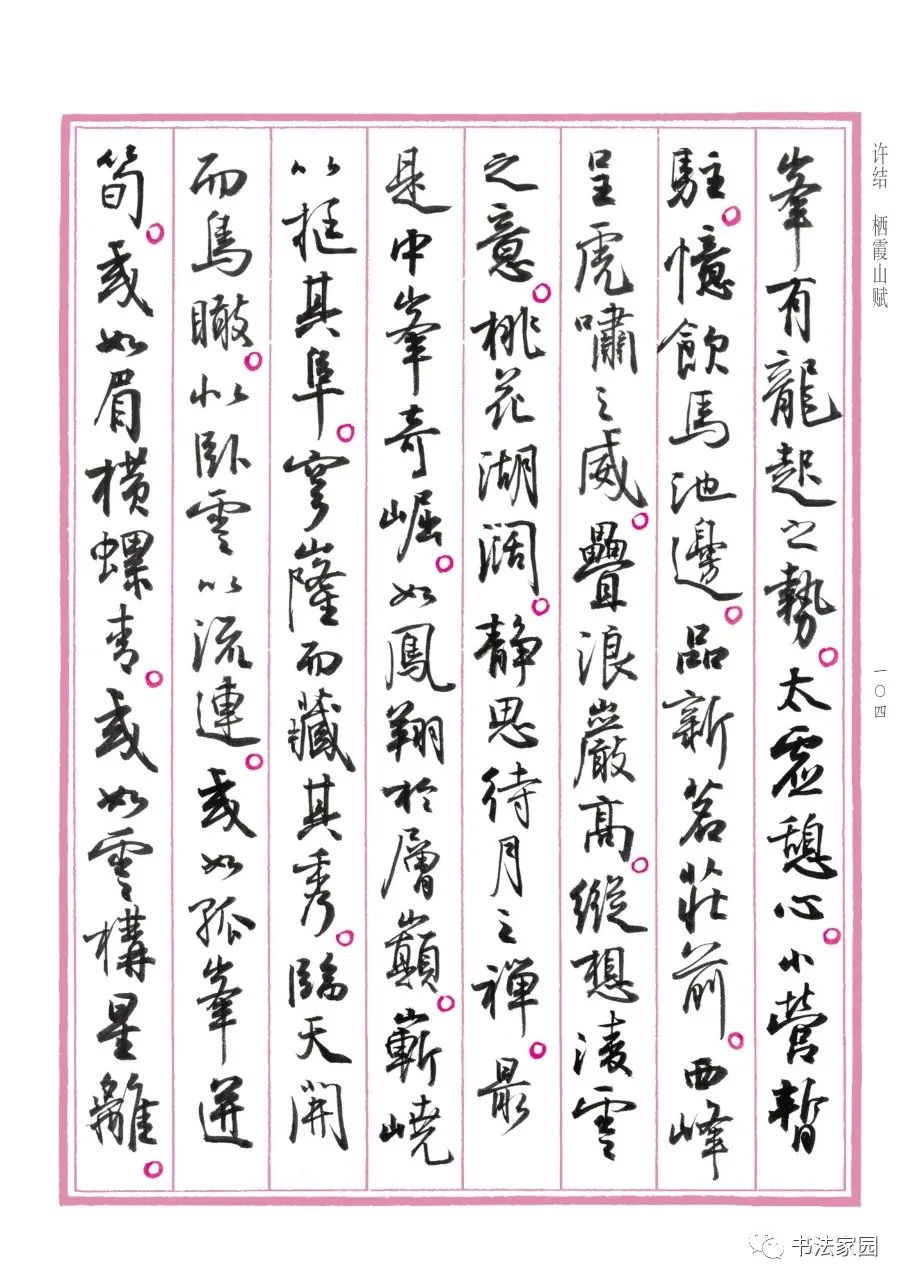 许结 栖霞山赋
一〇四
峯有龍起之勢。太虛憩心。小營暫
駐。憶飲馬池邊。品新茗莊前。西峰
呈虎嘯之威。疊浪巖高。縱想淩雲
之意。桃花湖闊。静思待月之禪。最
是中峯奇崛。如鳳翔於層巔。嶄嶢
以挺其阜。穹隆而藏其秀。臨天開
而鳥瞰。似卧雲以流連。或如孤峯迸
筍。或如眉橫螺青。或如雲構星離。
书法家园